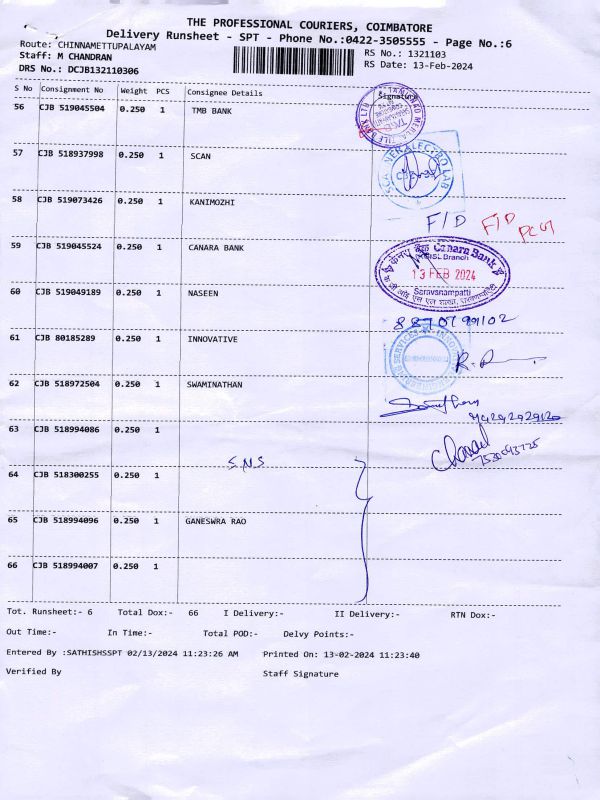 THE PROFESSIONAL COURIERS, COIMBATORE
Delivery Runsheet - SPT - Phone No.:0422-3505555 - Page No.:6
Route: CHINNAMETTUPALAYAM RS No.: 1321103
Staff: M CHANDRAN RS Date: 13-Feb-2024
DRS No.: DCJB132110306
S No Consignment No Weight PCS Consignee Details Signature
56 CJB 519045504 0.250 1 TMB BANK
57 CJB 518937998 0.250 1 SCAN
58 CJB 519073426 0.250 1 KANIMOZHI
F/D F/D
59 CJB 519045524 0.250 1 CANARA BANK
Canara Bank
Branch
13 FEB 2024
Saravanampatti
60 CJB 519049189 0.250 1 NASEEN
61 CJB 80185289 0.250 1 INNOVATIVE
62 CJB 518972504 0.250 1 SWAMINATHAN
63 CJB 518994086 0.250 1
S.N.S
64 CJB 518300255 0.250 1
65 CJB 518994096 0.250 1 GANESWRA RAO
66 CJB 518994007 0.250 1
Tot. Runsheet:- 6 Total Dox:- 66 I Delivery:- II Delivery:- RTN Dox:-
Out Time:- In Time:- Total POD:- Delvy Points:-
Entered By :SATHISHSSPT 02/13/2024 11:23:26 AM Printed On: 13-02-2024 11:23:40
Verified By Staff Signature